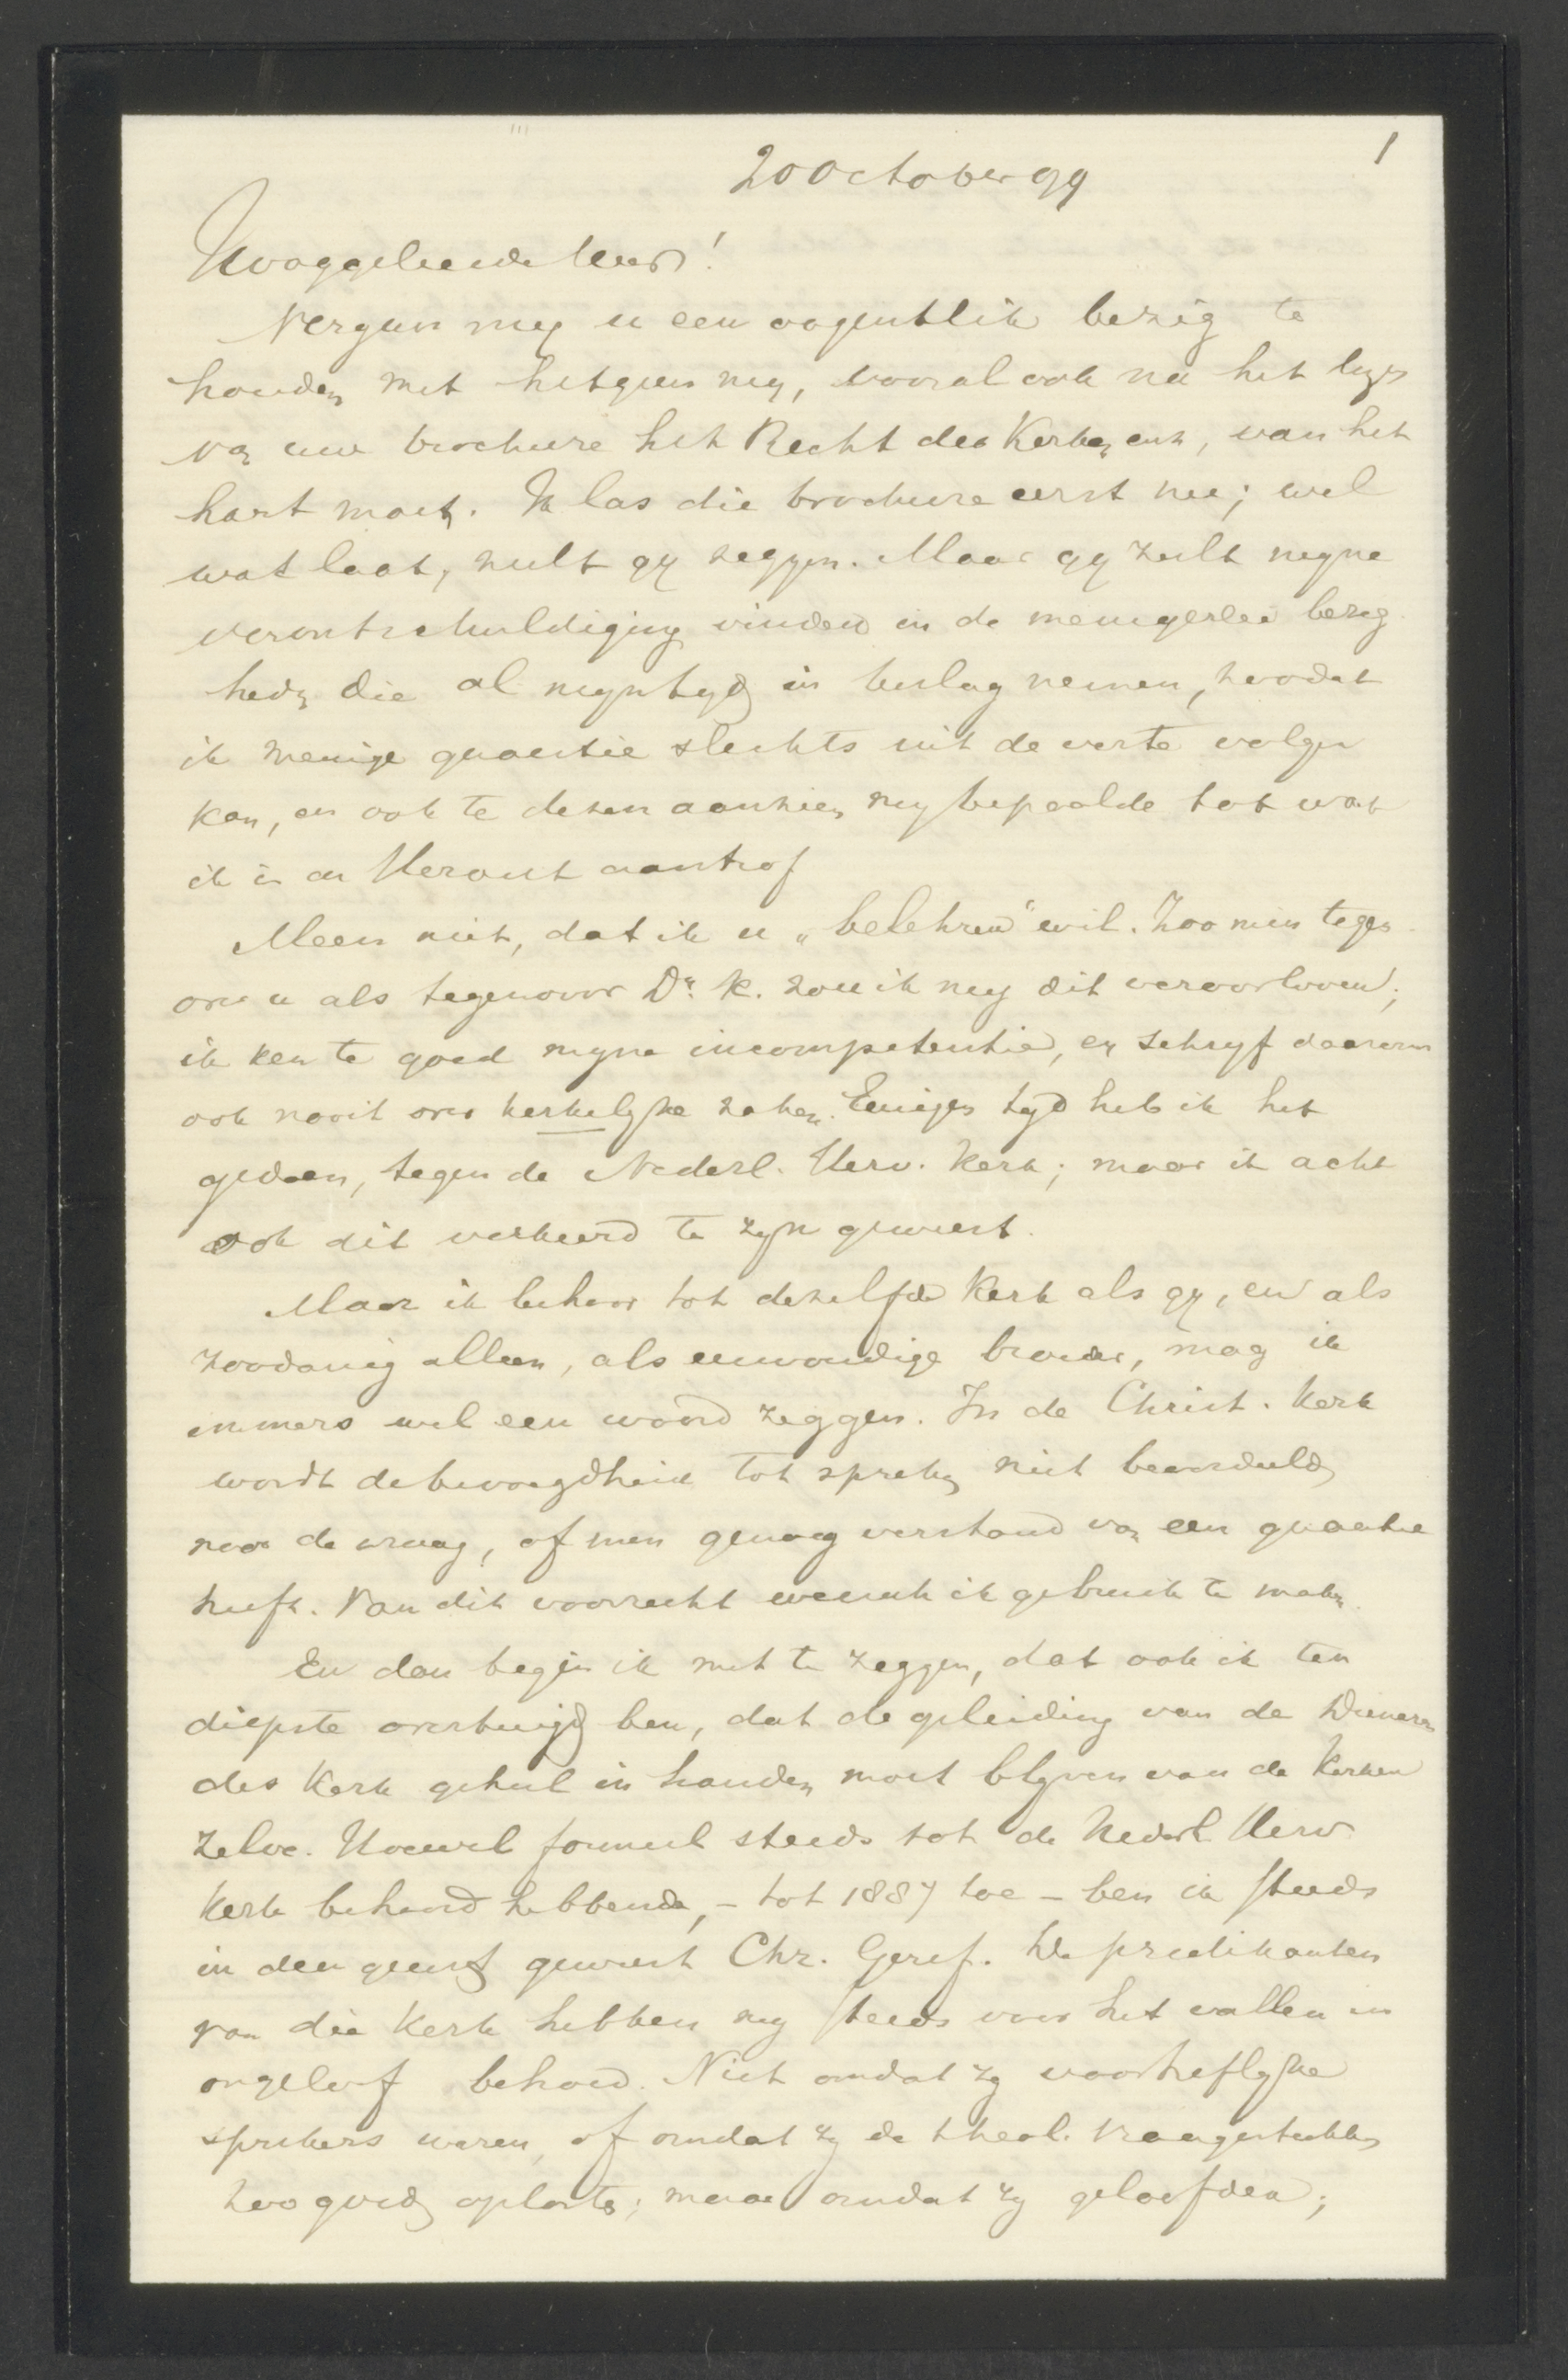 1
20 October 99
Hooggeleerde Heer!
Vergun my u een oogenblik bezig te
houden met hetgeen my, vooral ook na het lezen
van uw brochure het Recht der Kerken enz, van het
hart moet. Ik las die brochure eerst nu; wel
wat laat, zult gy zeggen. Maar gy zult myne
verontschuldiging vinden in de menigerlei bezig-
heden die al myn tyd in beslag nemen, zoodat
ik menige quaestie slechts uit de verte volgen
kan, en ook te dezen aanzien my bepaalde tot wat
ik in de Heraut aantrof
Meen niet, dat ik u „belehren" wil. Zoo min tegen-
over u als tegenover Dr. K. zou ik my dit veroorloven;
ik ken te goed myne incompetentie, en schryf daarom
ook nooit over kerkelyke zaken. Eenigen tyd heb ik het
gedaan, tegen de Nederl. Herv. Kerk; maar ik acht
ook dit verkeerd te zyn geweest.
Maar ik behoor tot dezelfde Kerk als gy, en als
zoodanig alleen, als eenvoudige broeder, mag ik
immers wel een woord zeggen. In de Christ. Kerk
wordt de bevoegdheid tot spreken niet beoordeeld
naar de vraag, of men genoeg verstand van een quaestie
heeft. Van dit voorrecht wensch ik gebruik te maken.
En dan begin ik met te zeggen, dat ook ik ten
diepste overtuigd ben, dat de opleiding van de Dienaren
der Kerk geheel in handen moet blyven van de Kerken
zelve. Hoewel formeel steeds tot de Nederl Herv
Kerk behoord hebbende, – tot 1887 toe – ben ik steeds
in den geest geweest Chr. Geref. De predikanten
van die Kerk hebben my steeds voor het vallen in
ongeloof behoed. Niet omdat zy voortreflyke
sprekers waren, of omdat zy de theol. vraagstukken
zoo goed oplosten; maar omdat zy geloofden;